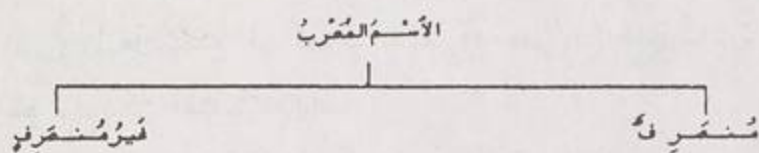 الأسْمَ المُعْرَبُ
مُنصَرِفٌ
غَيرُ مُنصَرِفٍ